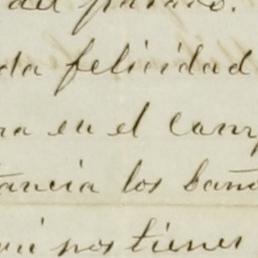 del
da felicidad
ra en el camp
tancia los bañ
qui nos tienes